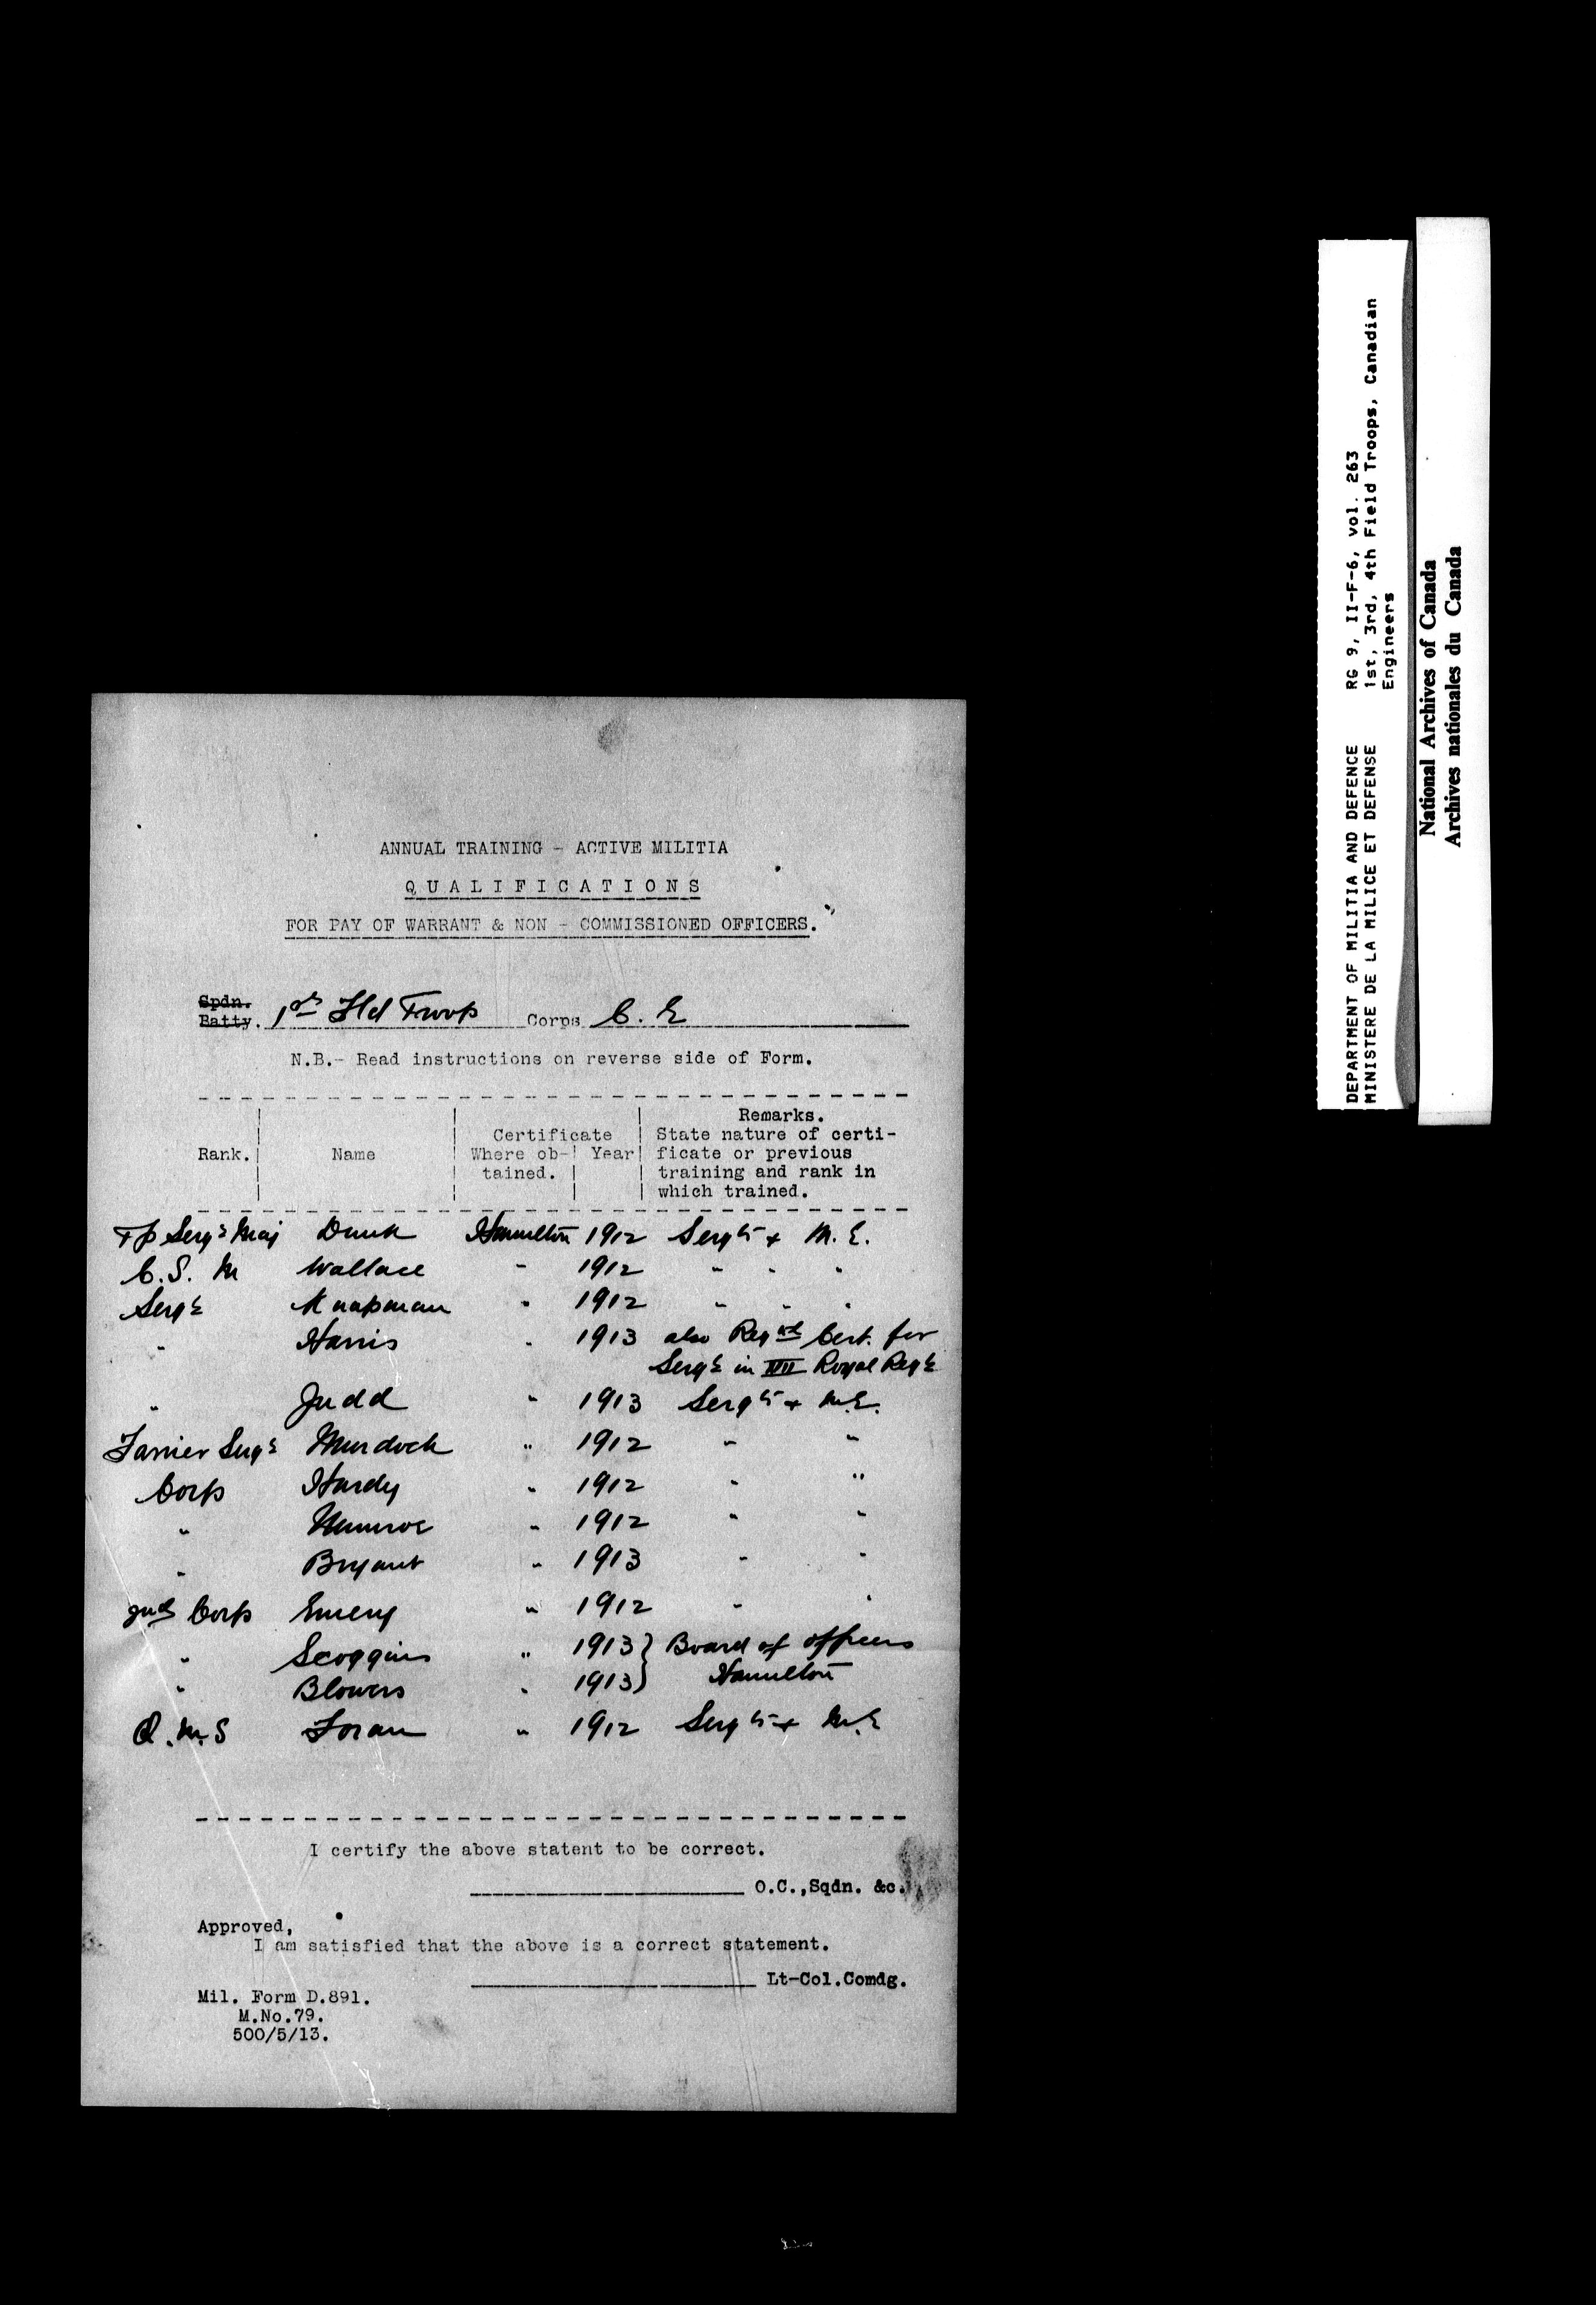 ANNUAL TRAINING - ACTIVE MILITIA
QUALIFICATIONS
FOR PAY OF WARRANT & NON - COMMISSIONED OFFICERS.
Sqdn.
Batty. 1st Fld Troop Corps C. E
N.B.- Read instructions on reverse side of Form.
Rank. Name Certificate Where ob-tained. Year Remarks. State nature of certi-
ficate or previous
training and rank in
which trained.
Tp Sergt Maj Dunk Hamilton 1912 Sergts + M. E.
C. S. M Wallace " 1912 " " "
Sergt Knapman " 1912 " " "
" Harris " 1913 also Regtl Cert. for
Sergt in XIII Royal Regt
" Judd " 1913 Sergts + M.E.
Farrier Sergt Murdock " 1912 " "
Corp Hardy " 1912 " "
" Munroe " 1912 " "
" Bryant " 1913 " "
2nd Corp Emery " 1912 " "
" Scoggins " 1913 } Board of Officers
" Blowers " 1913 } Hamilton
Q.M.S Foran " 1912 Sergts + M.E
I certify the above statent to be correct.
O.C.,Sqdn. &c.
Approved,
I am satisfied that the above is a correct statement.
Lt-Col.Comdg.
Mil. Form D.891.
M.No.79.
500/5/13.
DEPARTMENT OF MILITIA AND DEFENCE RG 9, II-F-6, vol. 263
MINISTERE DE LA MILICE ET DEFENSE 1st, 3rd, 4th Field Troops, Canadian
Engineers
National Archives of Canada
Archives nationales du Canada